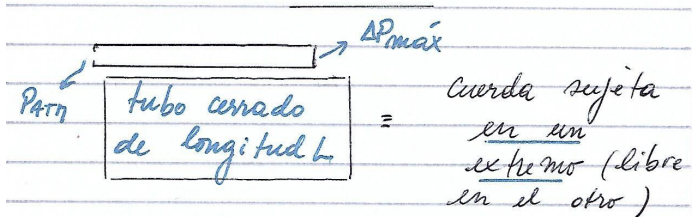 ΔPmáx
PATM
tubo cerrado
de longitud L
≡
cuerda sujeta
en un
extremo (libre
en el otro)